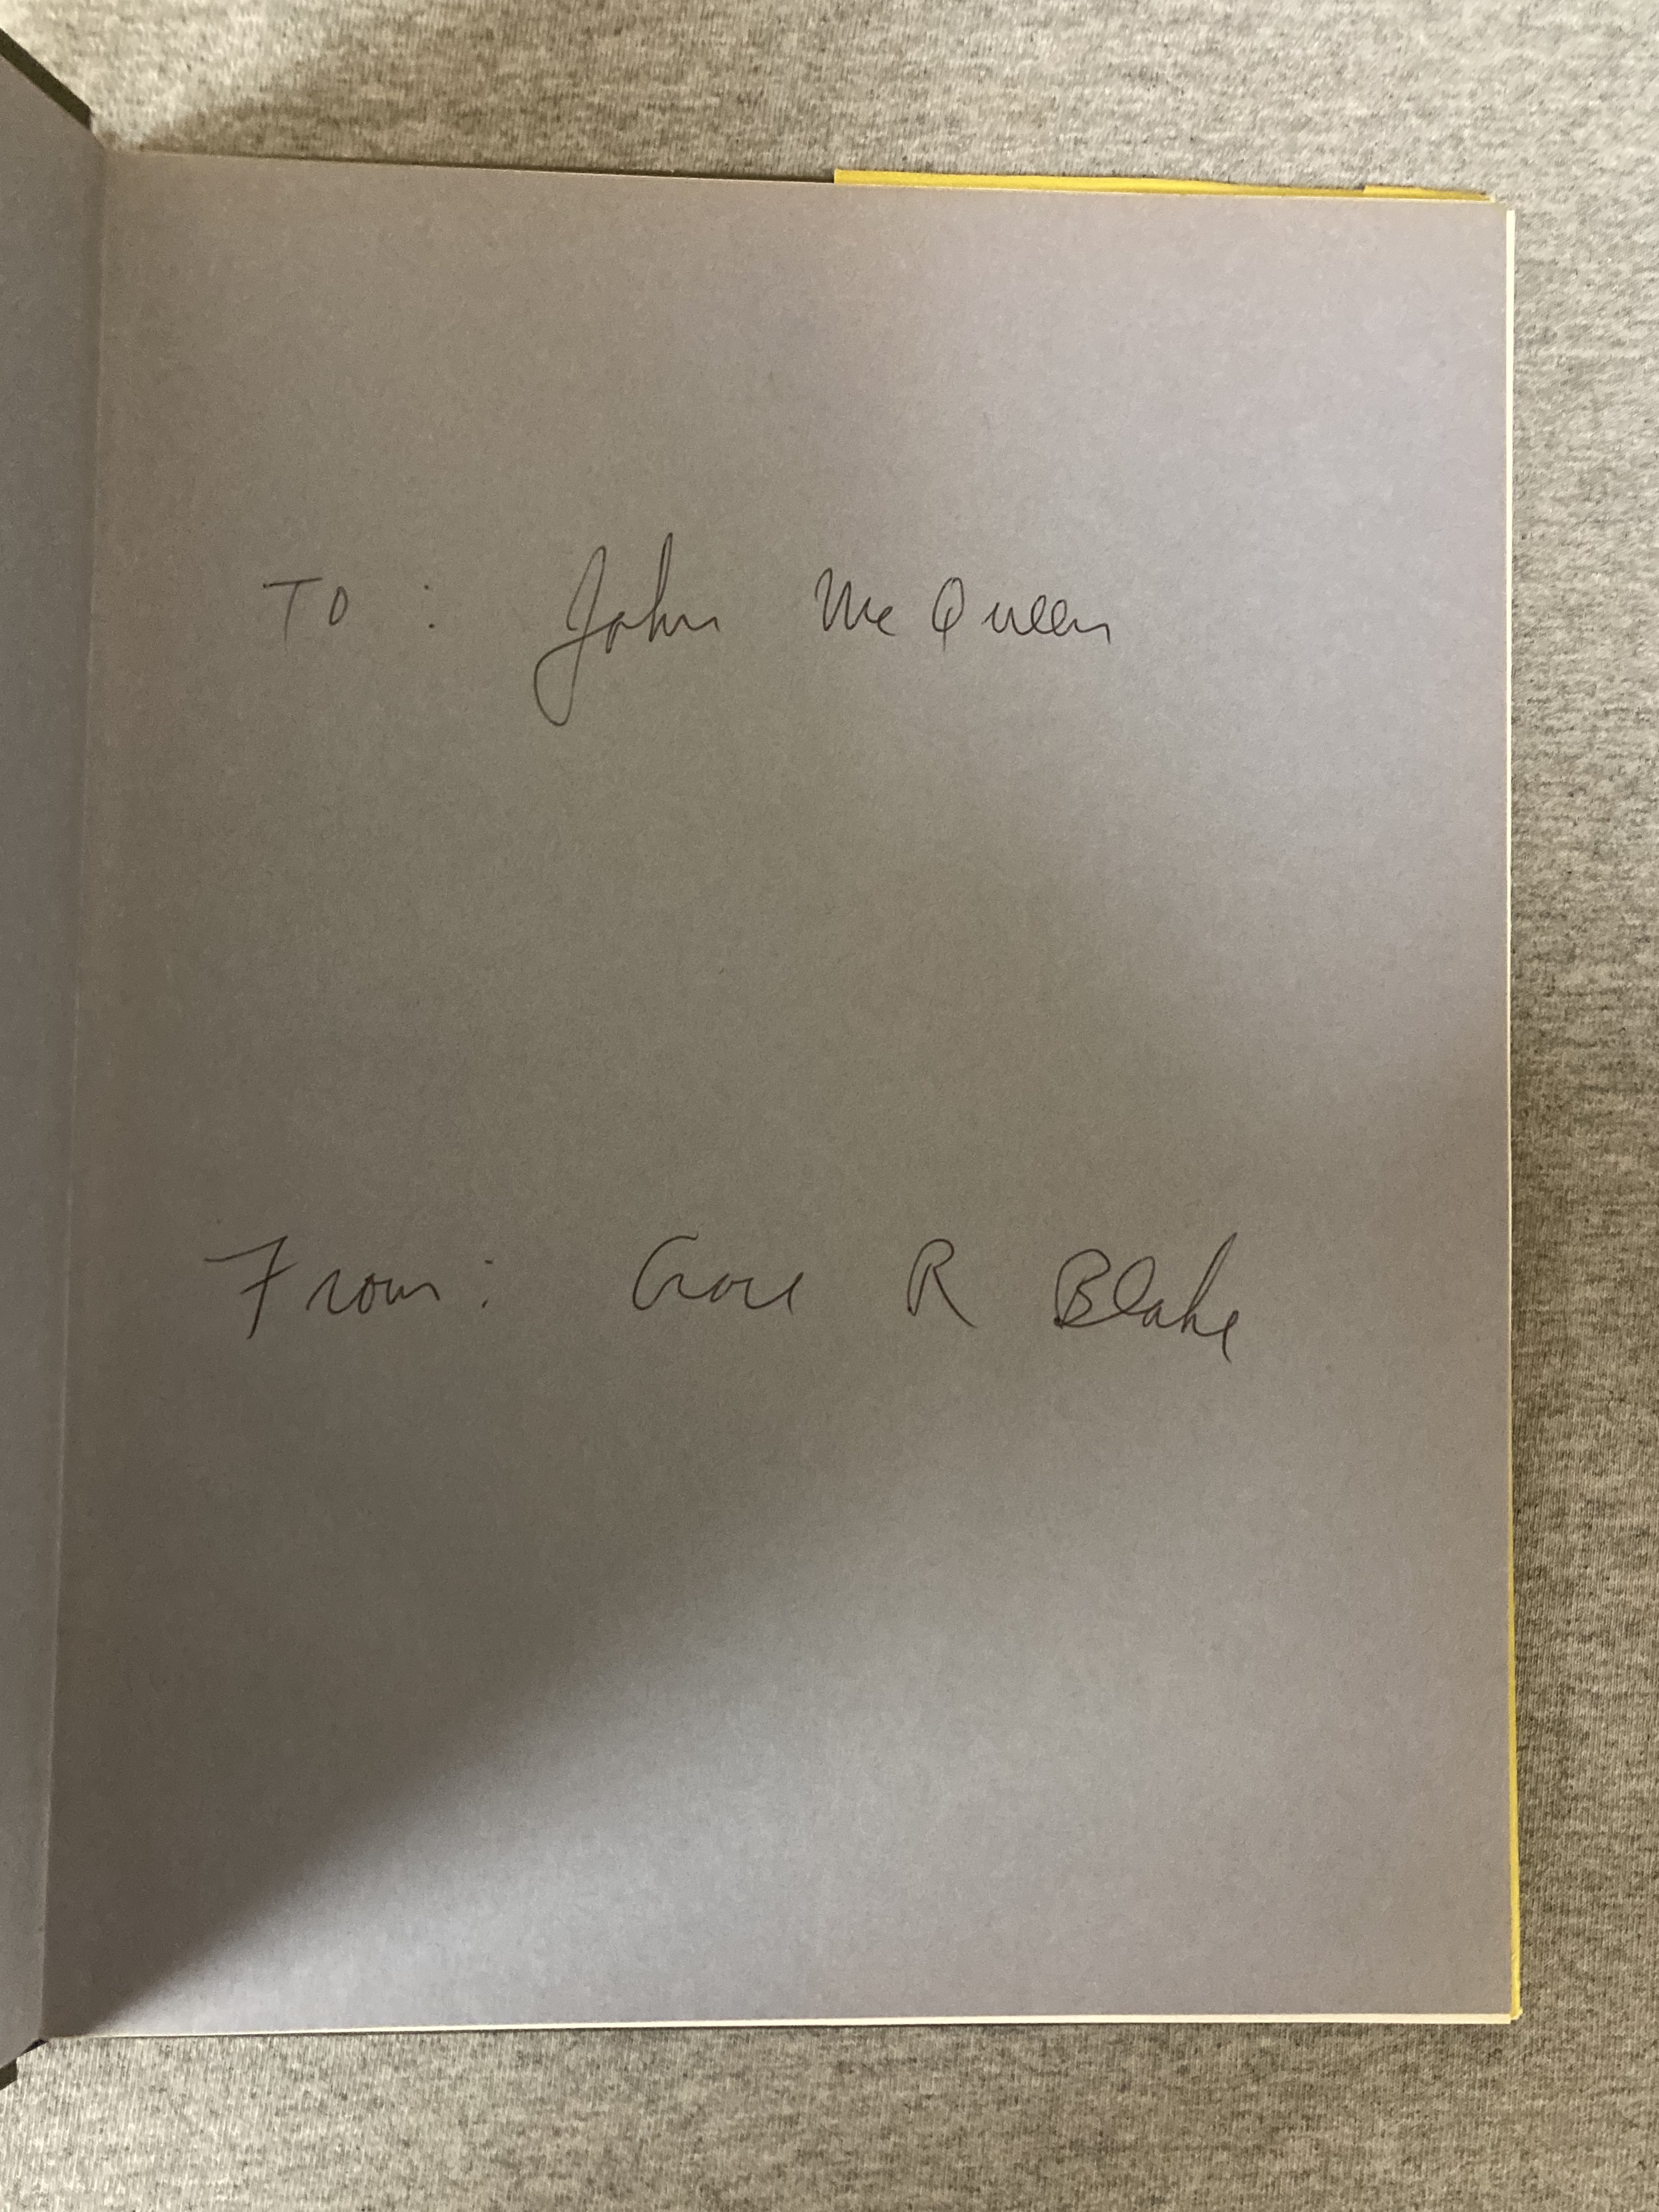 TO: John McQueen
From: R Blake